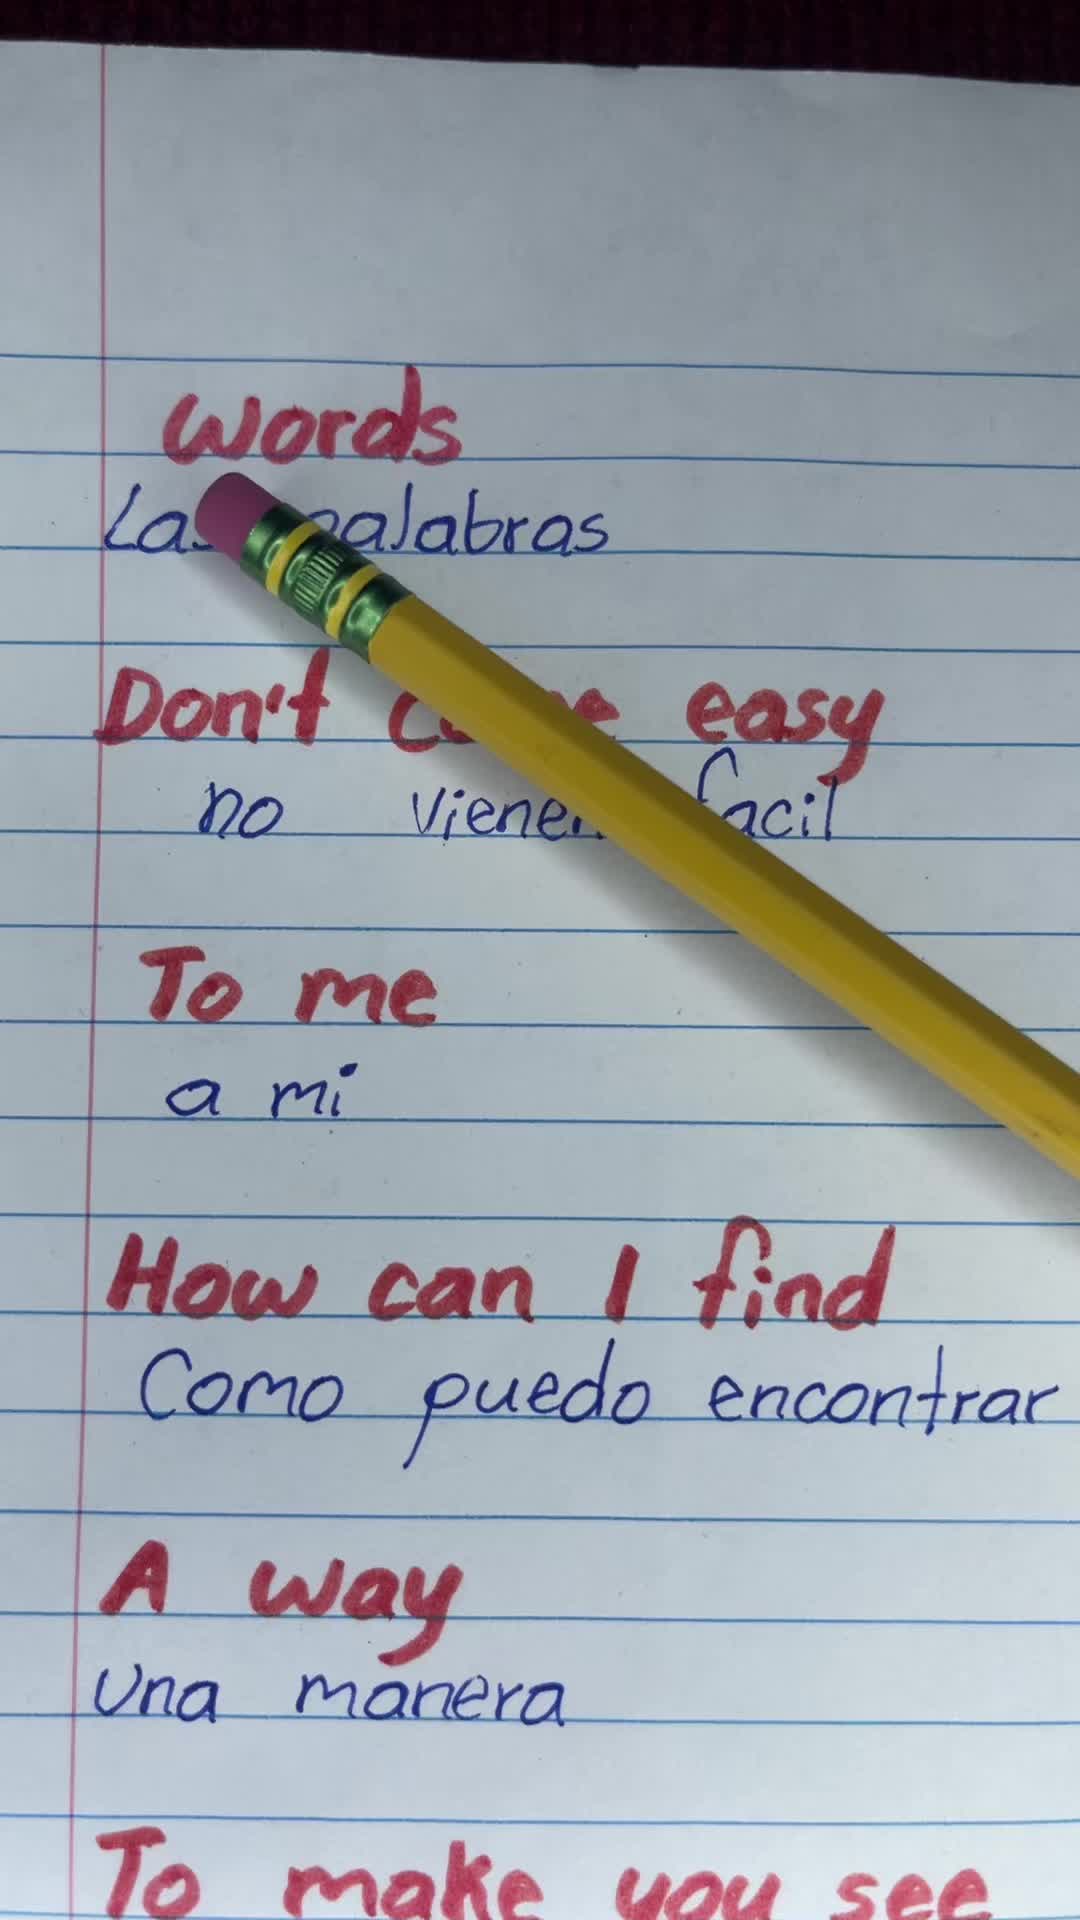 Words
Las palabras
Don't come easy
no vienen facil
To me
a mi
How can I find
Como puedo encontrar
A way
Una manera
To make you see